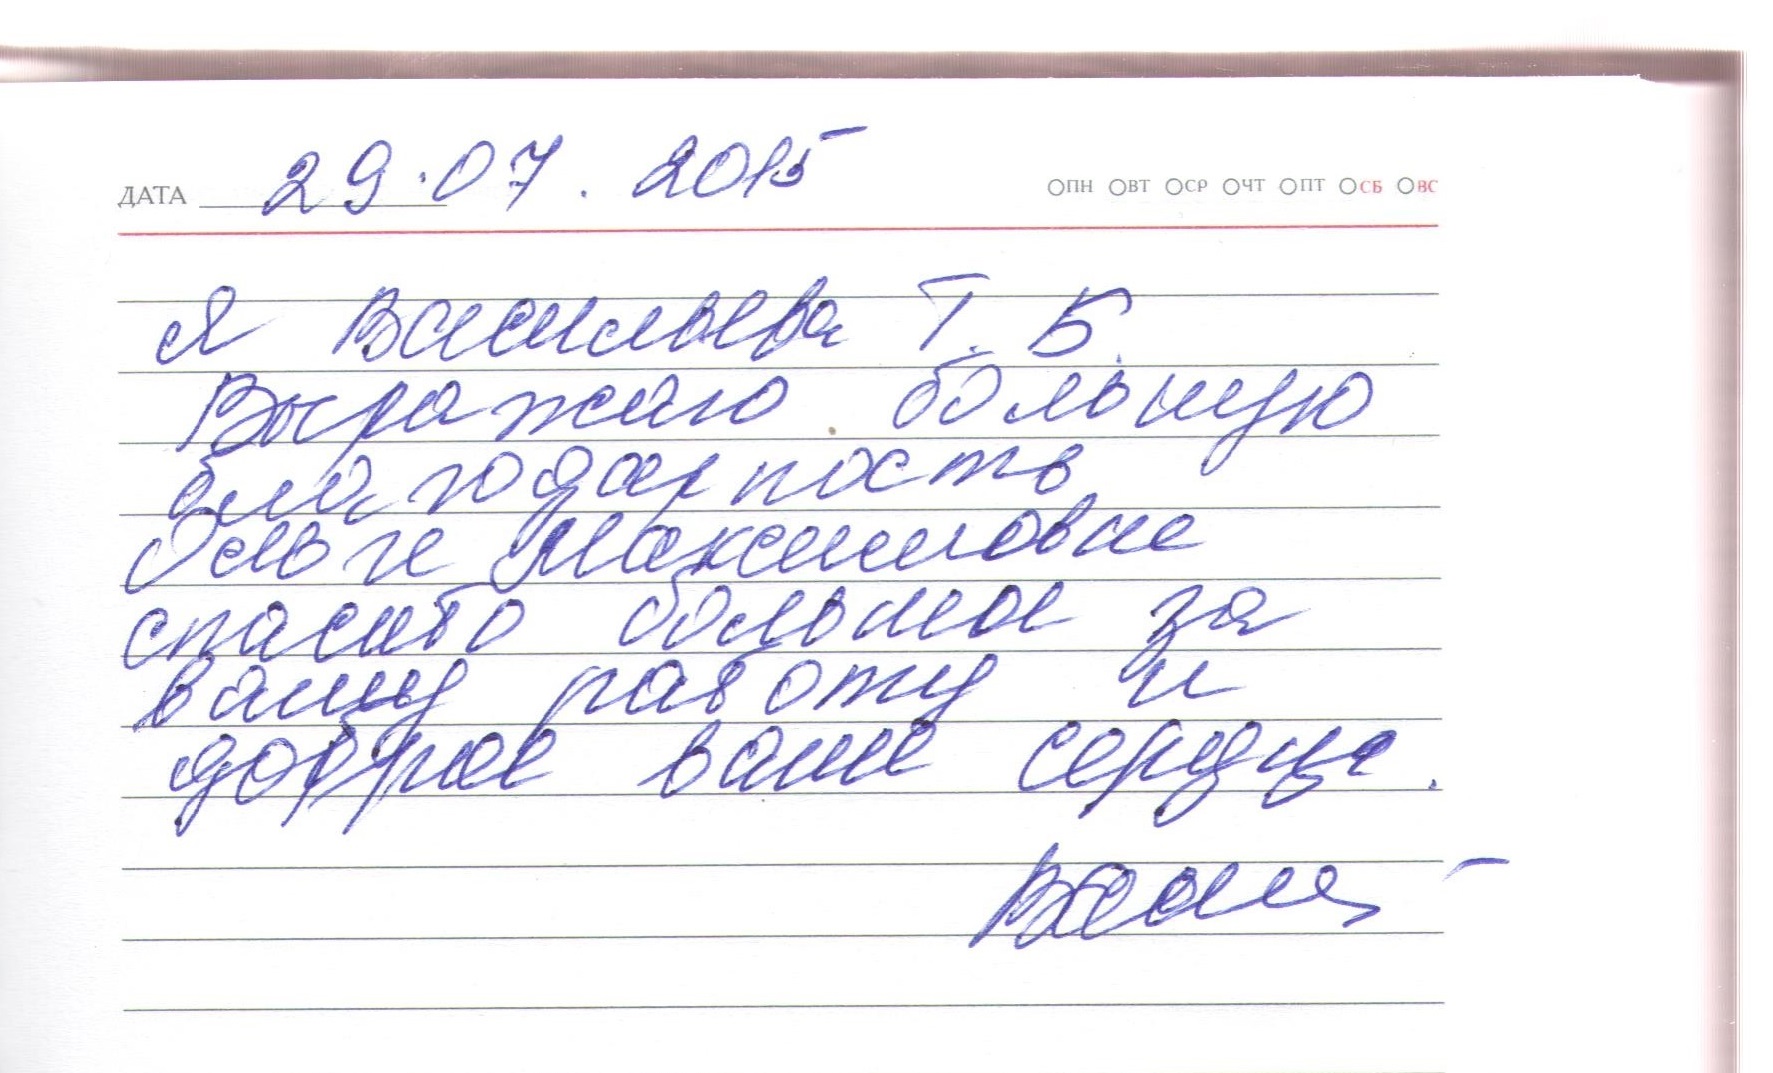 ДАТА 29.07.2015 ПН ВТ СР ЧТ ПТ СБ ВС
Я Васильева Т. Б.
Выражаю большую
благодарность
Ольге Максимовне
спасибо большое за
вашу работу и
доброе ваше сердце.